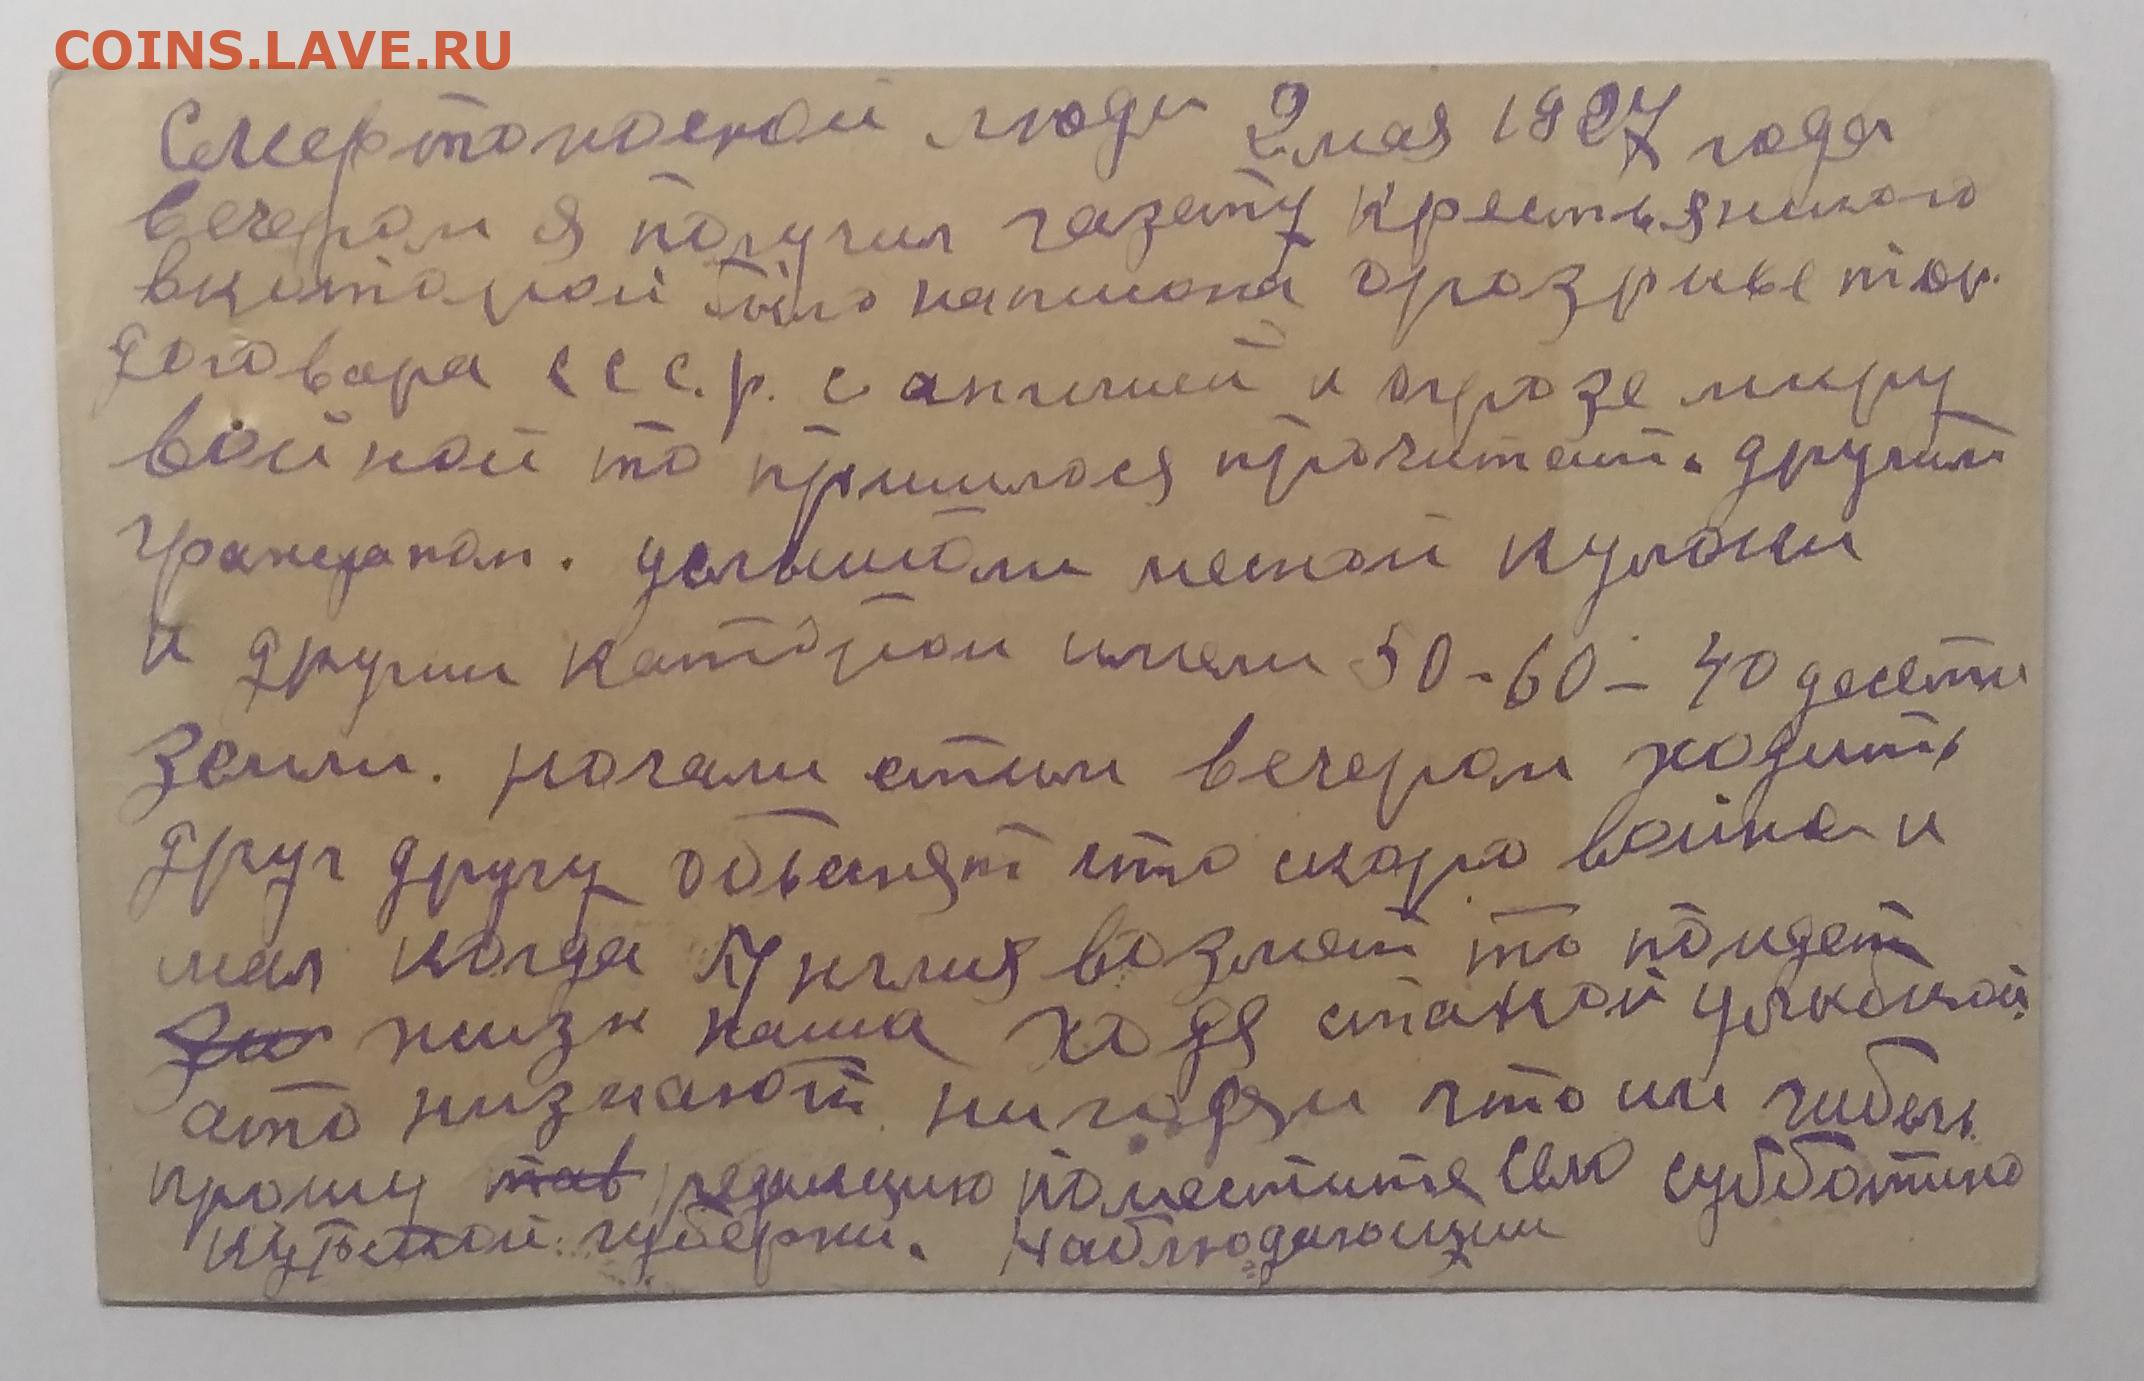 COINS.LAVE.RU
Смертоноской люди 2 мая 1927 года
вечером я получил газету крестьянского
вкоторой было написона орозрыве тор.
договара С С С. р. с англией и огрозе миру
войной то пришлося прочитат. другим
гражданом. услышоли меской кулоки
и другии каторои имели 50-60-40 десетин
земли. ночали етим вечером ходить
друг другу объеснят что скоро война и
мал когда Англия возмет то поидет
жизн наша ходя
ато низнают нигодяи что им гибель
прошу редакцию поместите село субботино
губерни. наблюдающии